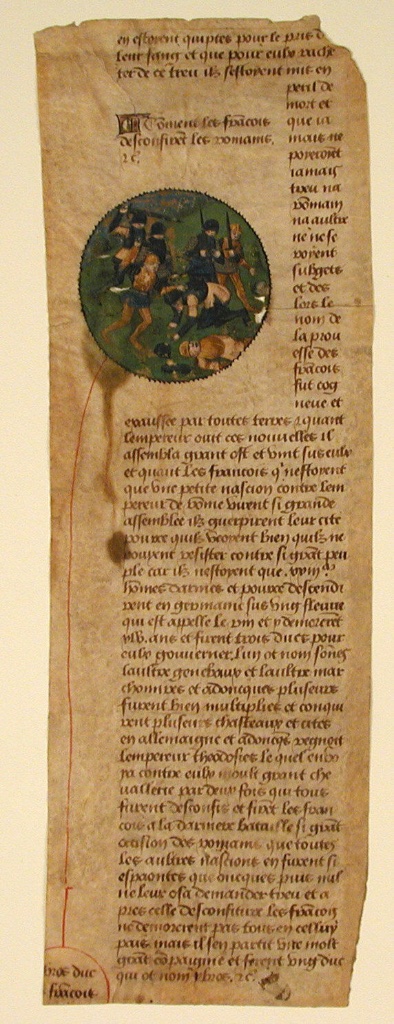 en estoyent quiptes pour le pris de
leur sang et que pour eulx rache
ter de ce treu ilz sestoyent mis en
peril de
mort et
que ia
mais ne
poieroient
iamais
treu na
romain
na aultre
ne ne se
royent
subgets
et des
lors le
nom de
la prou
esse des
francois
fut cog
neue et
Coment les francois
desconfirent les romains.
⁊c.
exaussee par toutes terres ⁊ quant
lempereur ouit ces nouuelles il
assembla grant ost et vint sus eulx
et quant les francois q̃ nestoyent
que vne petite nascion contre lem
pereur de rome virent si grande
assemblee ilz guerpirent leur cite
pource quilz veoyent bien quilz ne
pouyent resister contre si grāt peu
ple car ilz nestoyent que
hōmes darmes et pource descendi
rent en germanie sus vng fleuue
qui est appelle le rin et y demorerēt
ans et furent trois ducs pour
eulx gouuerner. lun ot nom
laultre genebaux et laultre mar
chomires et adoncques plusieurs
furent bien multiplies et conqui
rent plusieurs chasteaux et cites
en allemaigne et adoncq̄s regnoit
lempereur theodosies le quel enuo
ya contre eulx moult grant che
vallerie par deux fois qui tous
furent desconfis et firēt les fran
cois a la darniere bataille si grāt
occision des romains que toutes
les aultres nascions en furent si
espaontes que oncques puis nul
ne leur osa demander treu et a
pres celle desconfiture les frācois
ne demorerent pas tous en celluy
pais mais il sen partit vne molt
grāt cōpaignie et firent vng duc
qui ot nom ybros. ⁊c.
bros duc
francois